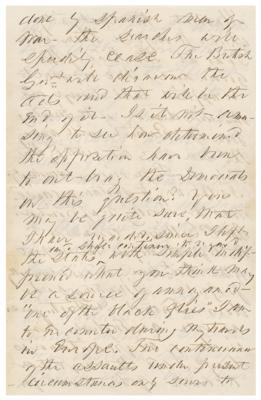 done by Spanish men of
war the searches will
speedily cease. The British
Govt will disavow the
acts and that will be the
end of it. Is it not amu-
sing to see how determined
the opposition have been
to out-brag the Democrats
on this question? You
may be quite sure, that
I have regarded since I left
the States, with simple indif-
ference what you think may
be a source of annoyance
one of the black flies I am
to encounter during my travels
in Europe. The continuance
of the assaults under present
circumstances only serves to